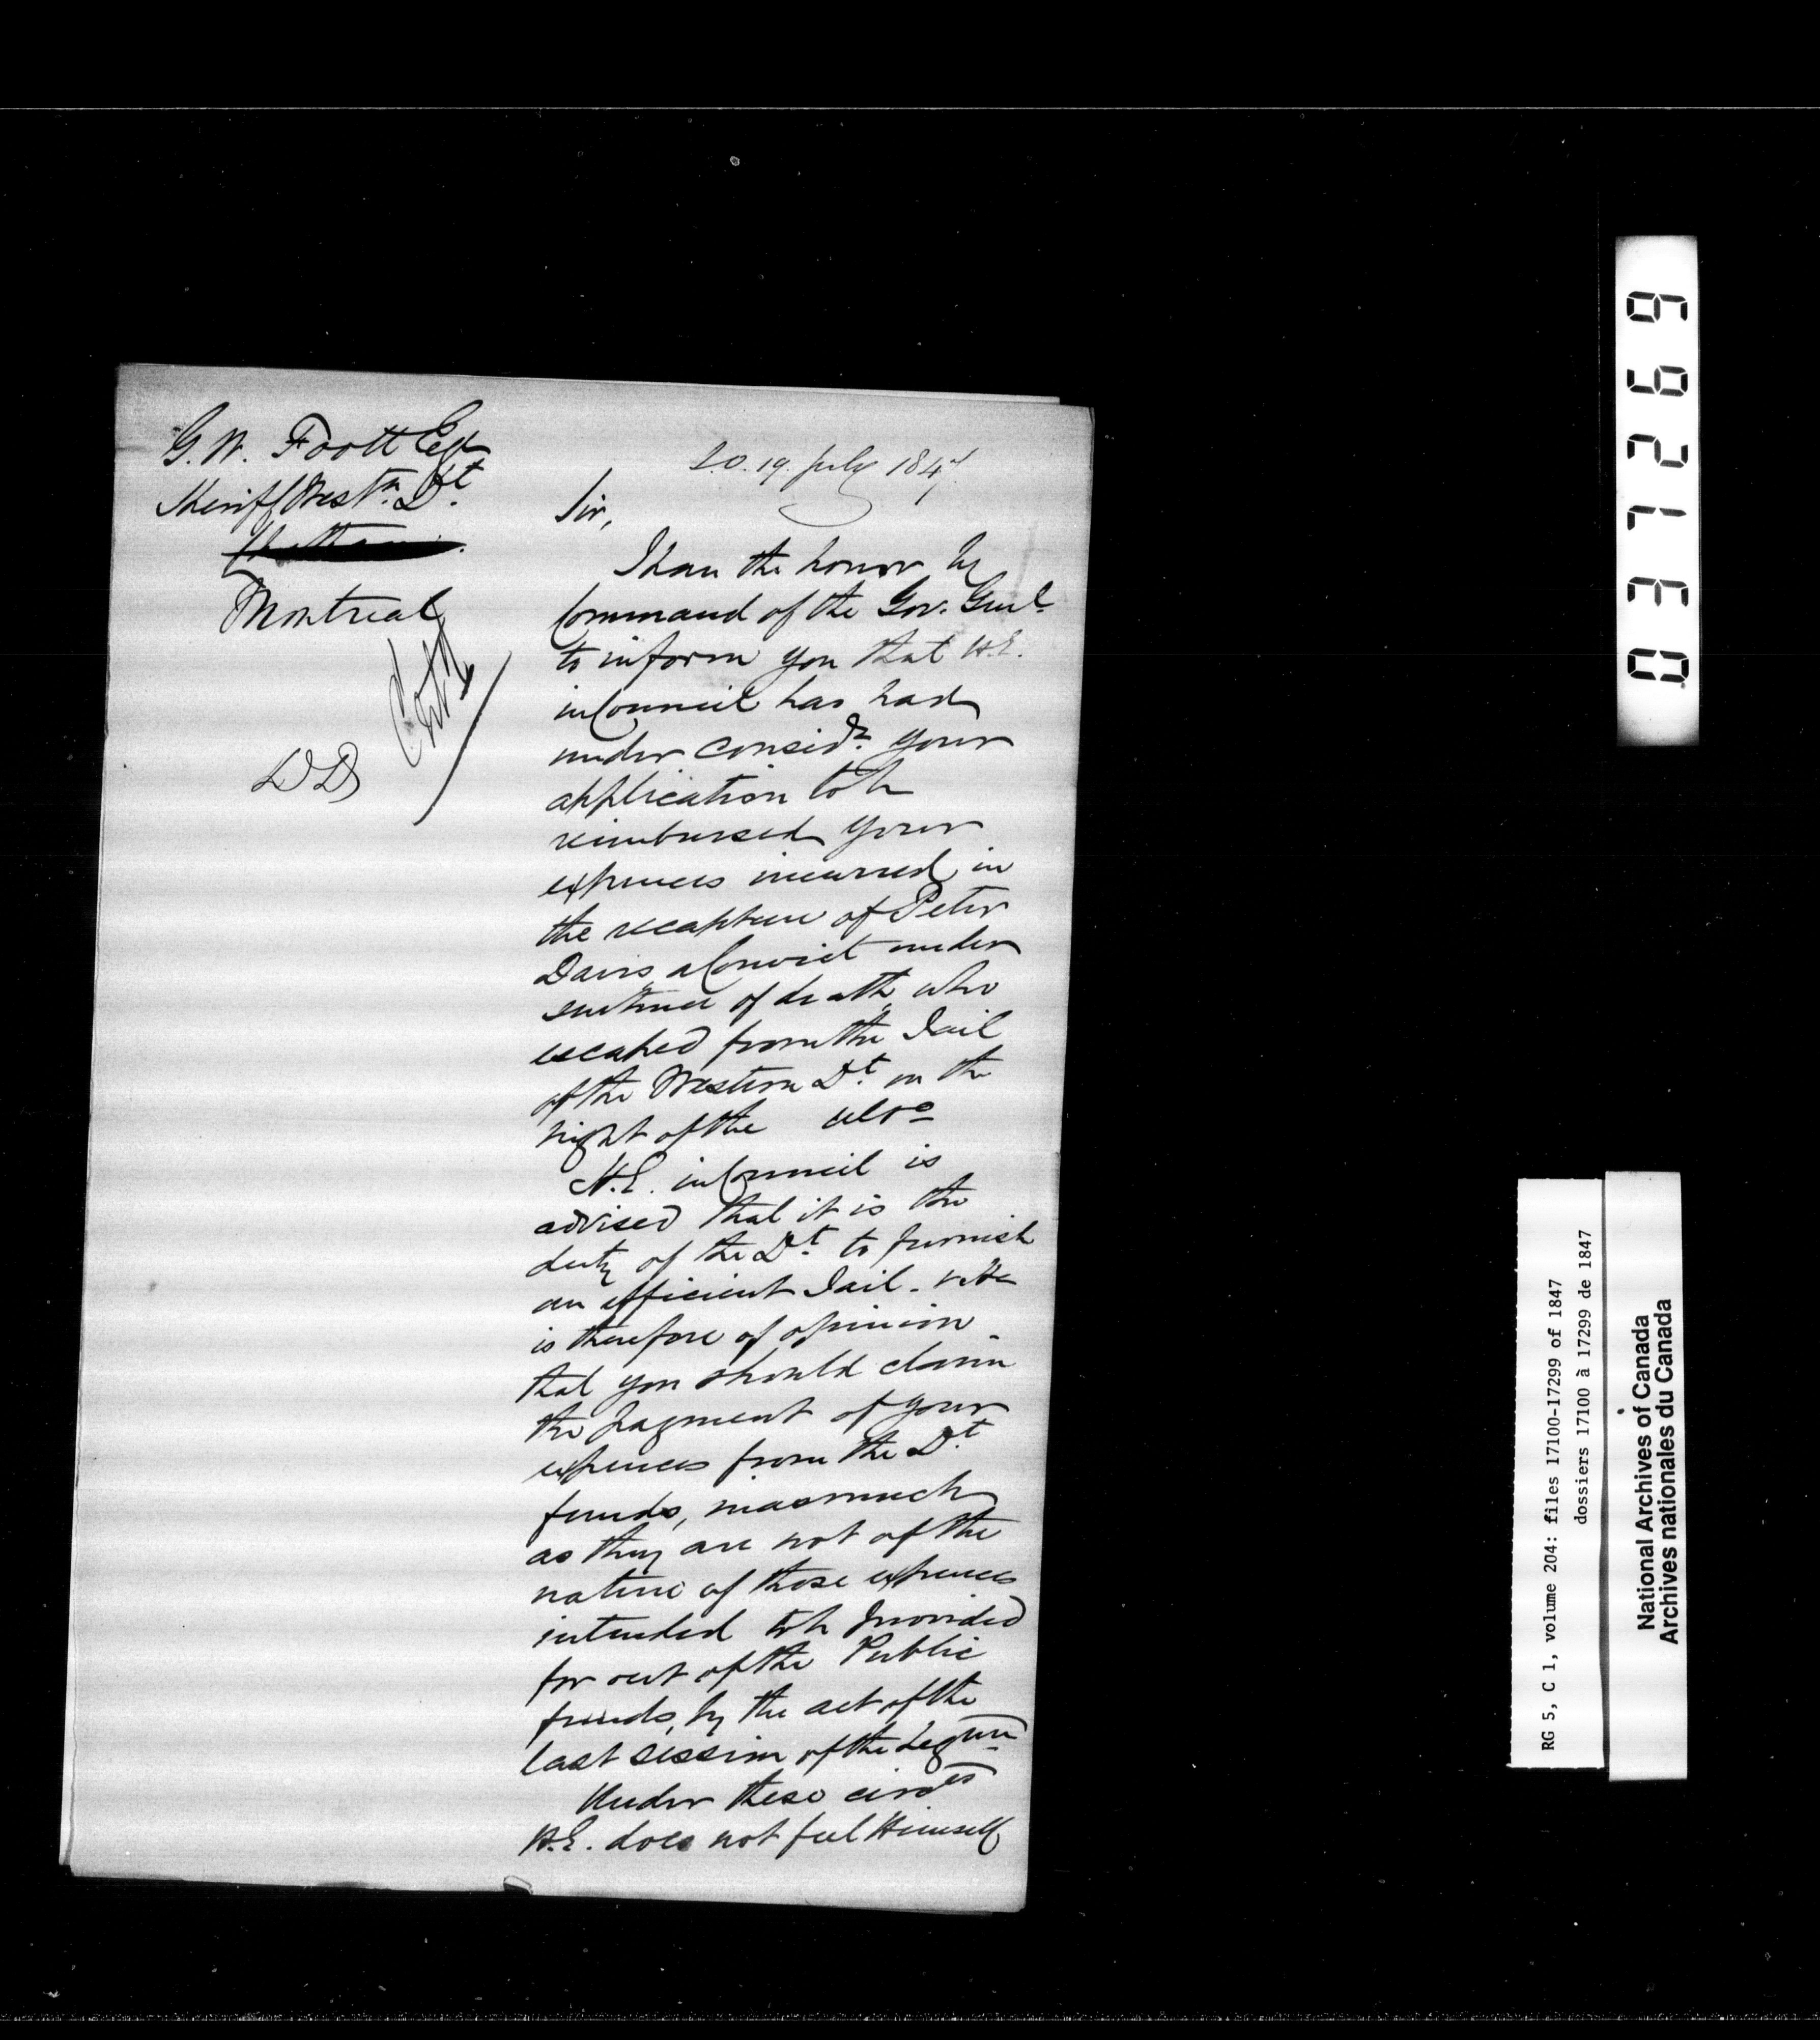 G. W. Foott Esq
Sheriff Westn. Dt.
Montreal
DD
S.O. 19. July 1847.
Sir,
I have the honor by
Command of the Gov. Genl.
to inform you that H.E.
in Council has had
under considn. your
application to be
reimbursed your
expences incurred in
the recapture of Peter
Davis, a Convict under
sentence of death, who
escaped from the Jail
of the Western Dt. on the
night of the ulto
H.E. in Council is
advised that it is the
duty of the Dt. to furnish
an efficient Jail. & He
is therefore of opinion
that you should claim
the payment of your
expences from the Dt.
funds, inasmuch
as they are not of the
nature of those expences
intended to be provided
for out of the Public
funds, by the act of the
last session of the Legure
Under these circes
H.E. does not feel Himself
037269
RG 5, C 1, volume 204: files 17100-17299 of 1847
dossiers 17100 à 17299 de 1847
National Archives of Canada
Archives nationales du Canada